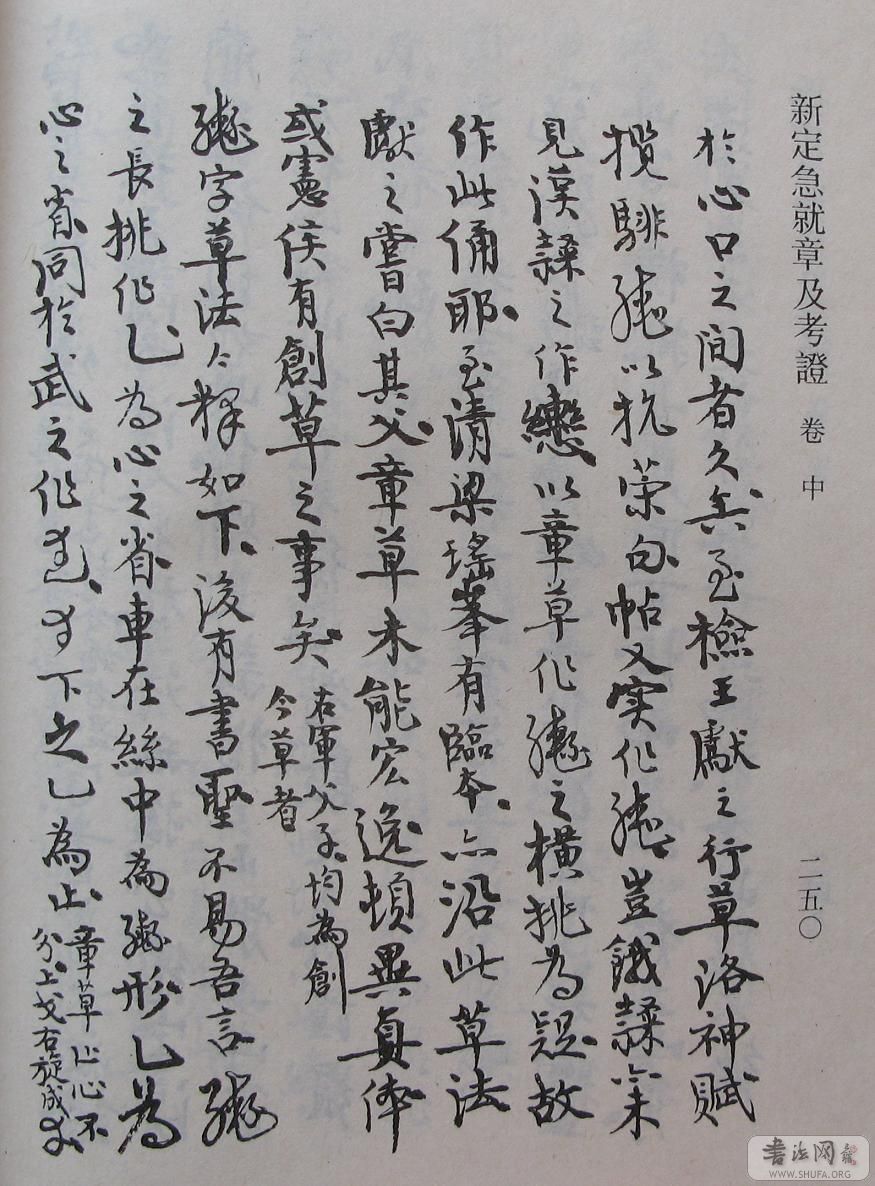 新定急就章及考證 卷中 二五〇
於心口之間者久矣至檢王獻之行草洛神賦
攬騑轡以抗策句帖又實作轡豈餓隸亦未
見漢隸之作轡以章草作轡之橫挑為疑故
作此俑耶至清梁瑤峯有臨本亦沿此草法
獻之嘗白其父章草未能宏逸頓異真体
或憲侯有創草之事矣
右軍父子均為創
今草者
轡字草法今釋如下後有書聖不易吾言轡
之長挑作乙為心之省車在絲中為轡形乚為
心之省同於武之作
下之乚為止
章草止心不
分上戈右旋成
書法网
WWW.SHUFA.ORG